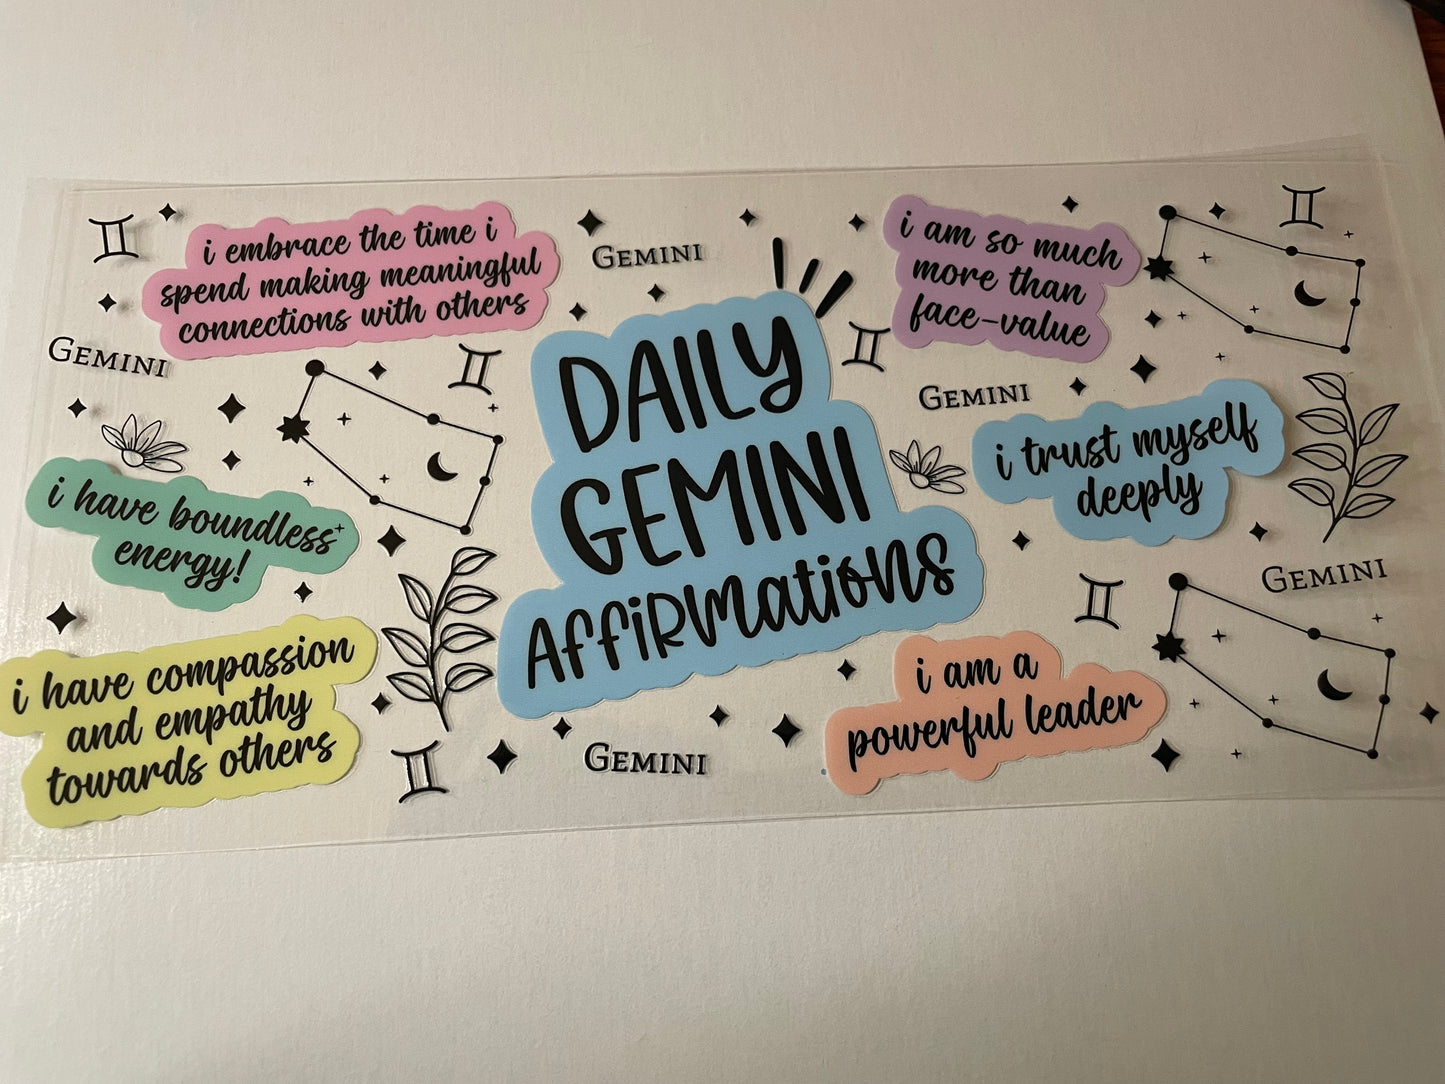 i embrace the time i
spend making meaningful
connections with others
GEMINI
i am so much
more than
face-value
GEMINI
DAILY
GEMINI
AFFIRMATIONS
GEMINI
i trust myself
deeply
i have boundless
energy!
GEMINI
i have compassion
and empathy
towards others
i am a
powerful leader
GEMINI